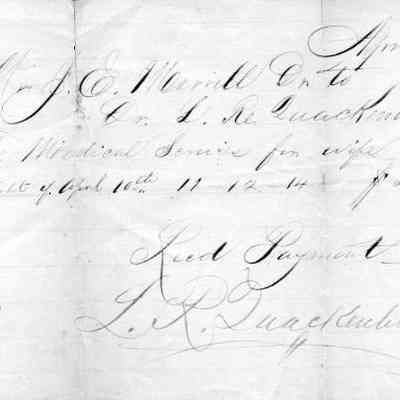 Apr
Mr J. E. Merrill Dr to
Dr. L. R. Quackenb
Medical Service for wife
of April 10th 11 - 12 - 14 - $
Recd Payment
L. R. Quackenb